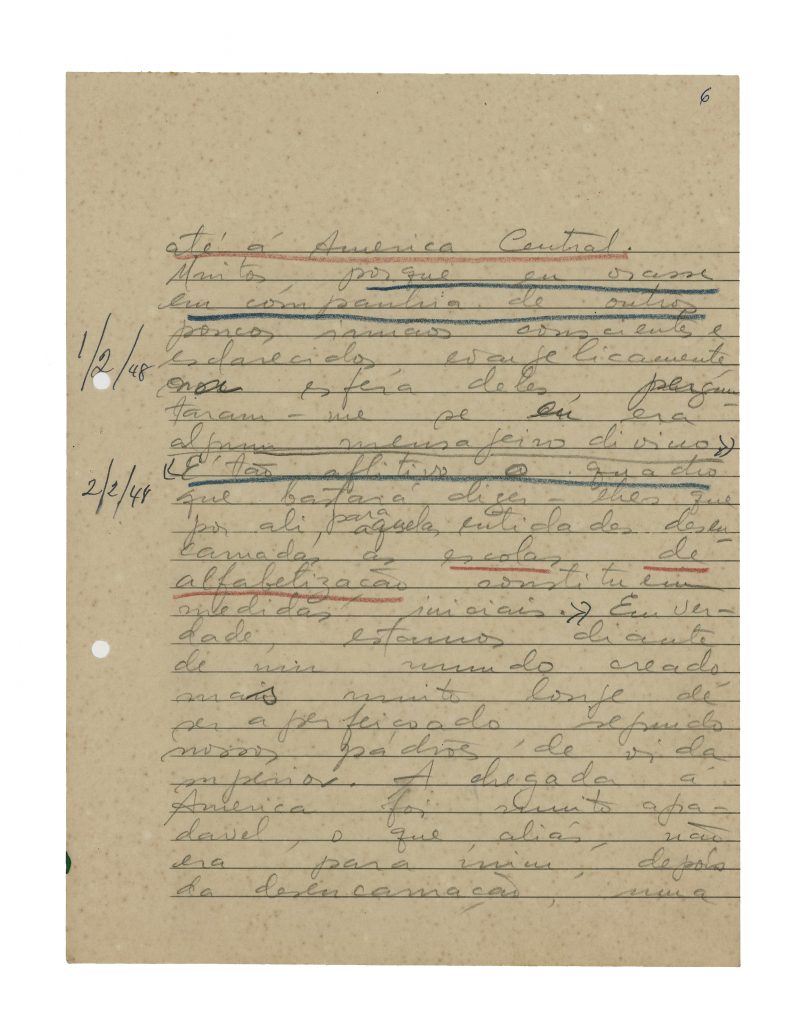 6
até á America Central.
Muitos porque eu orasse
em companhia de outros
poucos irmãos conscientes e
esclarecidos evangelicamente
1/2/48
na esfera deles pergun-
taram-me se eu era
algum mensageiro divino»
«É tão aflitivo o quadro
2/2/48
que bastará dizer-lhes que
por ali, para aquelas entidades desen-
carnadas as escolas de
alfabetização constituem
medidas iniciais.» Em ver-
dade, estamos diante
de um mundo creado
mais muito longe de
ser aperfeiçoado segundo
nossos padrões de vida
superior. A chegada á
America foi muito agra-
davel, o que aliás, não
era para mim, depois
da desencarnação, uma